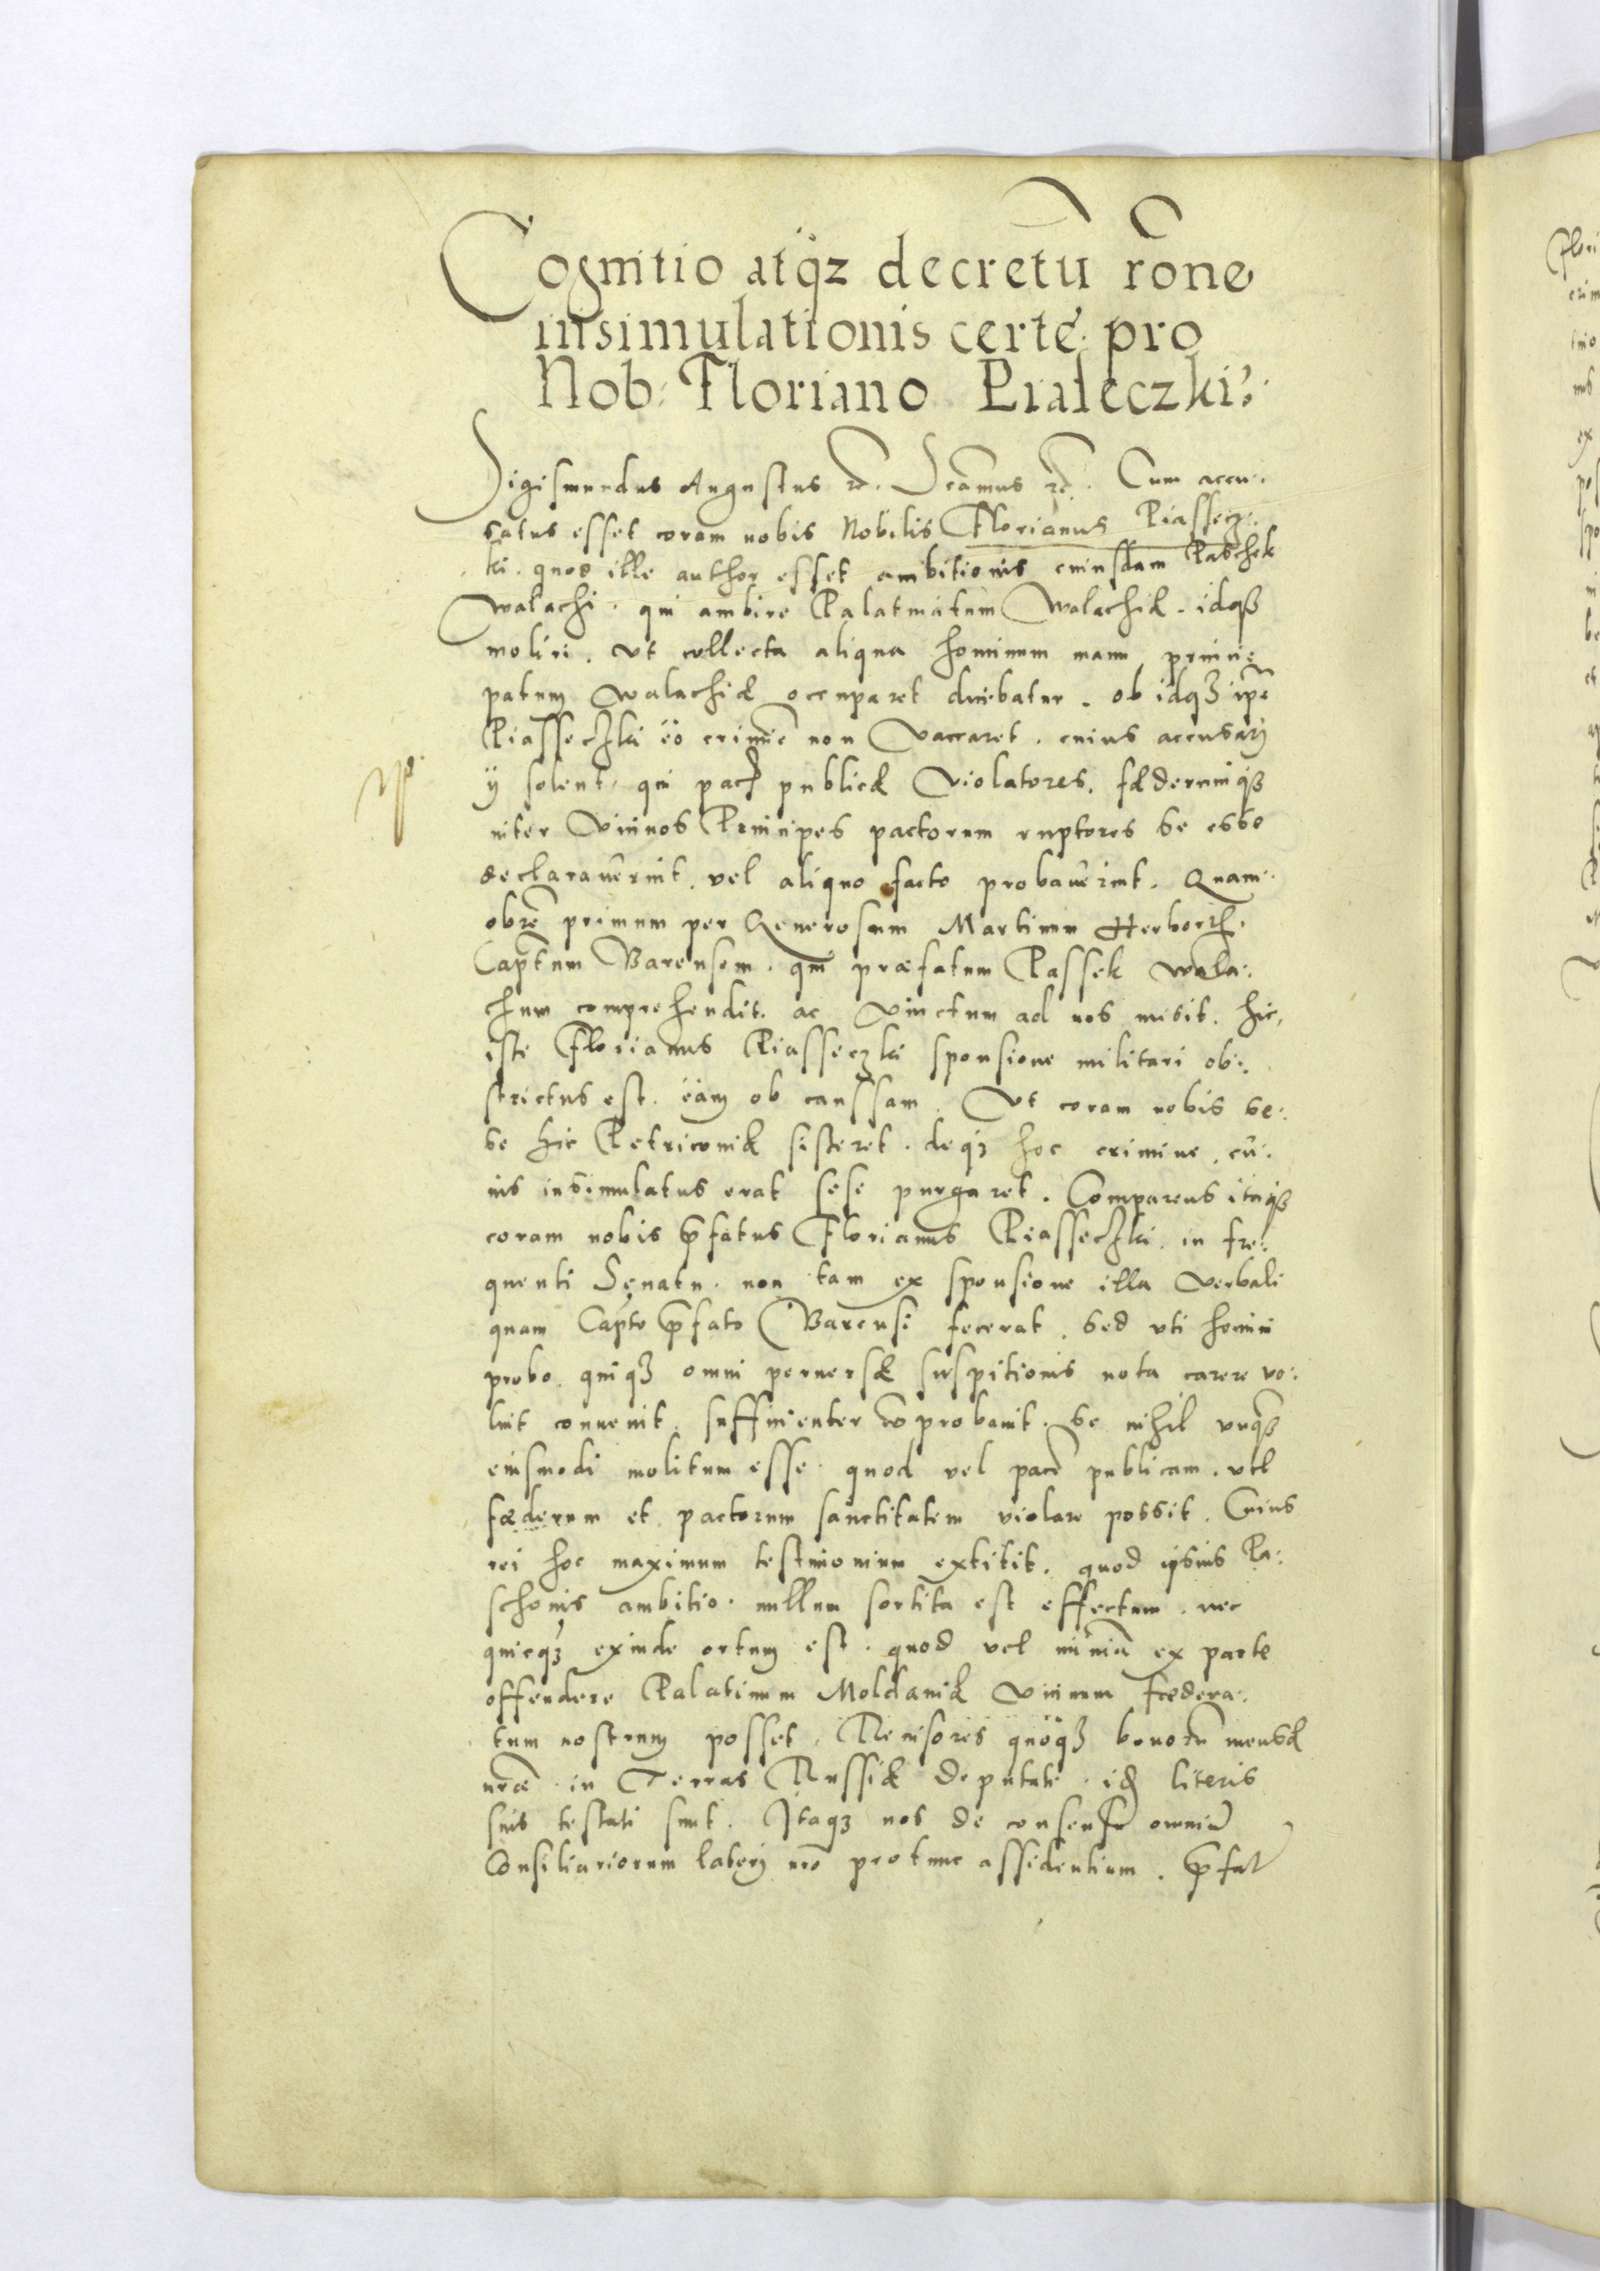 Cognitio atqꝫ decretū rone
insimulationis certe pro
Nob: Floriano Piaseczki:
Sigismundus Augustus rc. Scamus rc. Cum accu:
satus esset coram nobis Nobilis Florianus Piassecz:
ki. quod ille author esset ambitionis cuiusdam Paschek
walachi. qui ambire Palatinatum Walachiæ. idqꝫ
moliri. Ut collecta aliqua hominum manu princi:
patum Walachiæ occuparet dicebatur. ob idqꝫ ipe
Piasseczki eo crimine non Vaccaret. cuius accusarj
ij solent. qui pacis publicæ Violatores. fæderumqꝫ
inter Vicinos Principes pactorum ruptores se esse
declarauerint. vel aliquo facto probauerint. Quam:
obre primum per Generosum Martinum Herborth.
Captum Barensem. qui præfatum Passek Wala:
chum comprehendit. ac Vinctum ad nos misit. hic,
iste Florianus Piasseczki sponsione militari ob:
strictus est. eam ob caussam. Ut coram nobis se:
se hic Petricouiæ sisteret. deqꝫ hoc crimine. cu:
ius insimulatus erat sese purgaret. Comparens itaqꝫ
coram nobis pfatus Florianus Piasseczki. in fre:
quenti Senatu. non tam ex sponsione illa Verbali
quam Capto pfato Barensi fecerat. sed vti homini
probo. quiqꝫ omni peruersæ suspitionis nota carere vo:
luit conuenit. sufficienter coprobauit. se nihil vnqꝫ
eiusmodi molitum esse. quod vel pace publicam. vel
fæderum et pactorum sanctitatem violare possit. Cuius
rei hoc maximum testimonium extitit. quod ipsius Pa:
schonis ambitio. nullum sortita est effectum. nec
quicqꝫ exinde ortum est. quod vel minima ex parte
offendere Palatinum Moldauiæ Vicinum fædera:
tum nostrum posset. Reuisores quoqꝫ bonorum mensæ
nræ in Terras Russiæ deputati. id literis
suis testati sunt. Itaqꝫ nos de consensu omnium
Consiliariorum laterj nro protunc assidentium. pfat